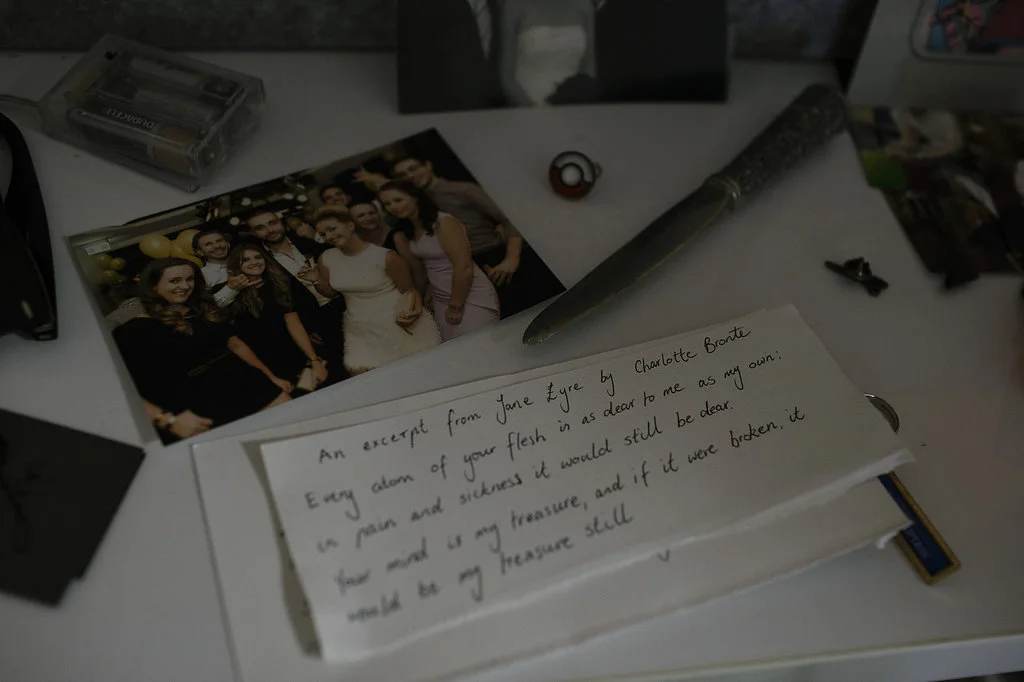 DURACELL
An excerpt from Jane Eyre by Charlotte Bronte
Every atom of your flesh is as dear to me as my own:
in pain and sickness it would still be dear.
Your mind is my treasure, and if it were broken, it
would be my treasure still